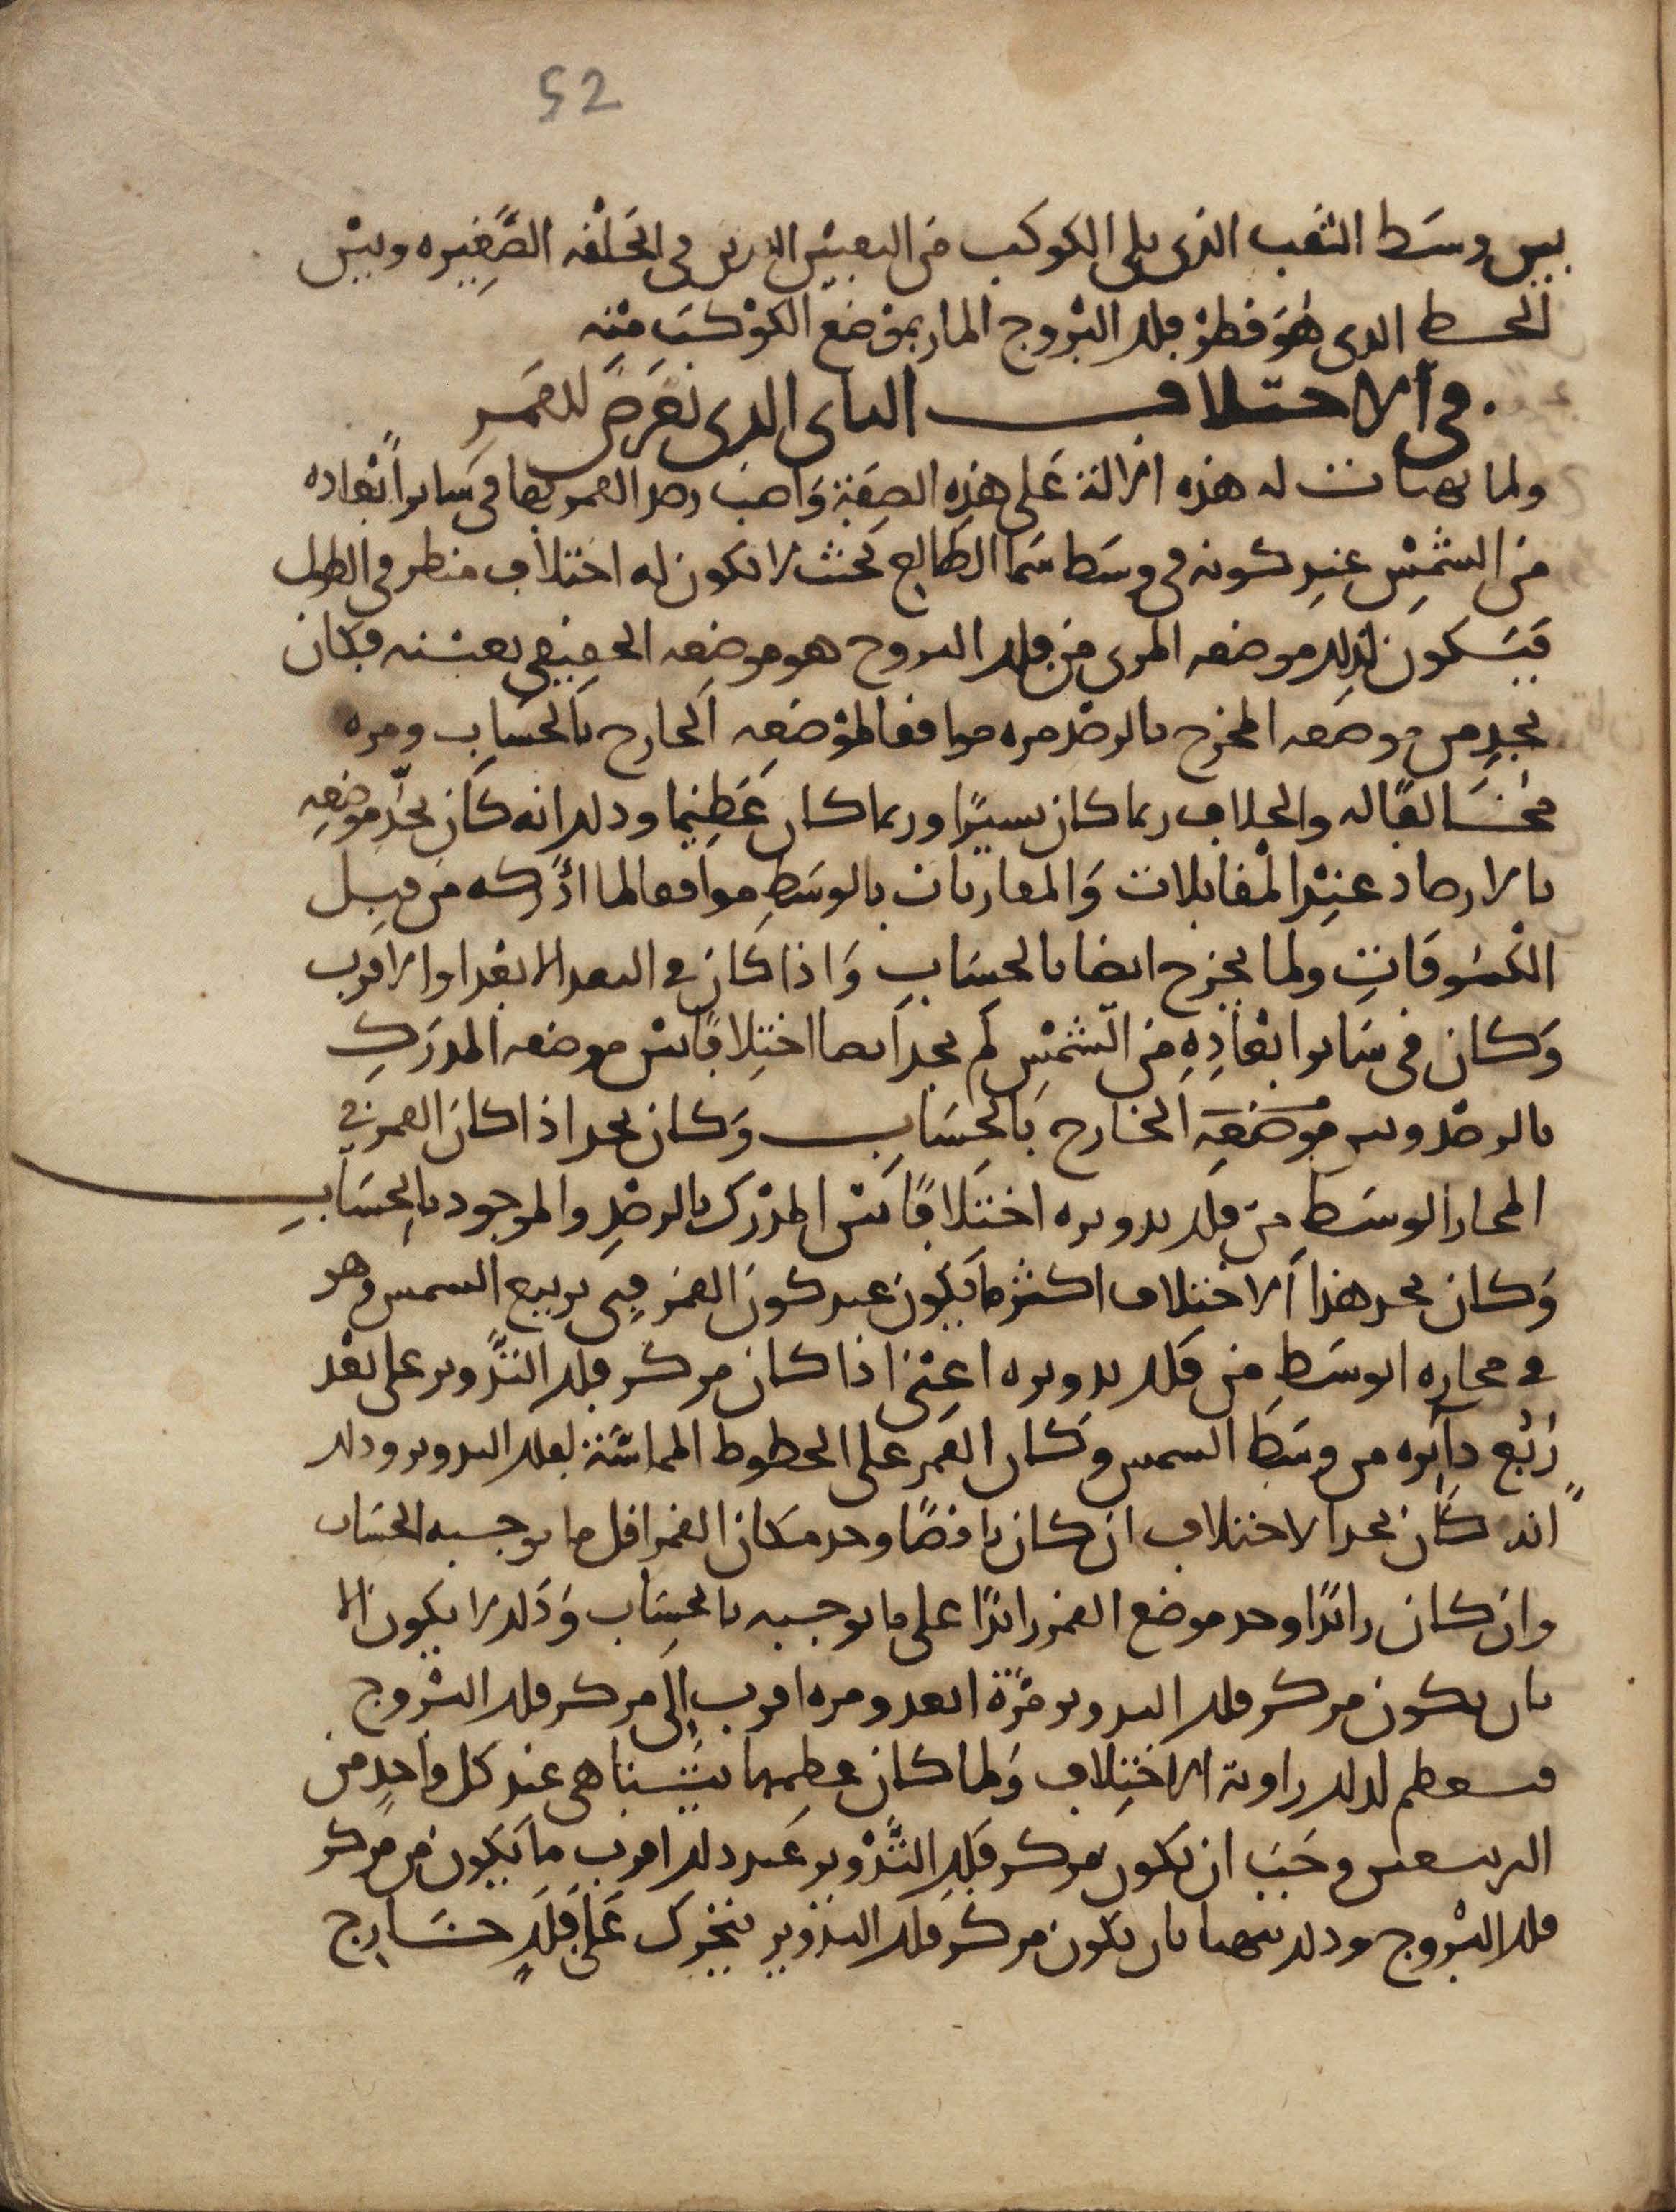 52
بين وسط الثقب الذى يلى الكوكب من الثقبين الذين فى الحلقه الصغيره وبين
الخط الذى هو قطر فلك البروج المار بموضع الكوكب منه
فى الاختلاف الثانى الذى يعرض للقمر
ولما تهيات له هذه الالة على هذه الصفة واصب رصد القمر بها فى ساير ابعاده
من الشمس عند كونه فى وسط سما الطالع بحيث لا يكون له اختلاف منظر فى الطول
فيكون لذلك موضعه المرى من فلك البروج هو موضعه الحقيقى بعينه فكان
يجد من موضعه المخرج بالرصد مره موافقا لموضعه الخارج بالحساب ومره
مخالفا له والخلاف ربما كان يسيرا وربما كان عظيما وذلك انه كان يجد موضعه
بالارصاد عند المقابلات والمقاربات بالوسط موافقا لما ادركه من قبل
الكسوفات ولما يخرج ايضا بالحساب واذا كان فى البعد الابعد او الاقرب
وكان فى ساير ابعاده من الشمس لم يجد ايضا اختلافا بين موضعه المدرك
بالرصد وبين موضعه الخارج بالحساب وكان يجد اذا كان القمر فى
المجاز الوسط من فلك تدويره اختلافا بين المدرك بالرصد والموجود بالحساب
وكان يجد هذا الاختلاف اكثر ما يكون عند كون القمر فى تربيع الشمس وهو
فى مجازه الوسط من فلك تدويره اعنى اذا كان مركز فلك التدوير على بعد
ربع دايره من وسط الشمس وكان القمر على الخطوط المماسة لفلك التدوير وذلك
انه كان يجد الاختلاف ان كان ناقصا وجد مكان القمر اقل ما يوجبه الحساب
وان كان زائدا وجد موضع القمر زائدا على ما يوجبه بالحساب وذلك لا يكون الا
بان يكون مركز فلك التدوير مرة ابعد ومره اقرب الى مركز فلك البروج
فتعظم لذلك زاوية الاختلاف ولما كان عظمها يتناهى عند كل واحد من
التربيعين وجب ان يكون مركز فلك التدوير عند ذلك اقرب ما يكون من مركز
فلك البروج وذلك يتهيا بان يكون مركز فلك التدوير يتحرك على فلك خارج